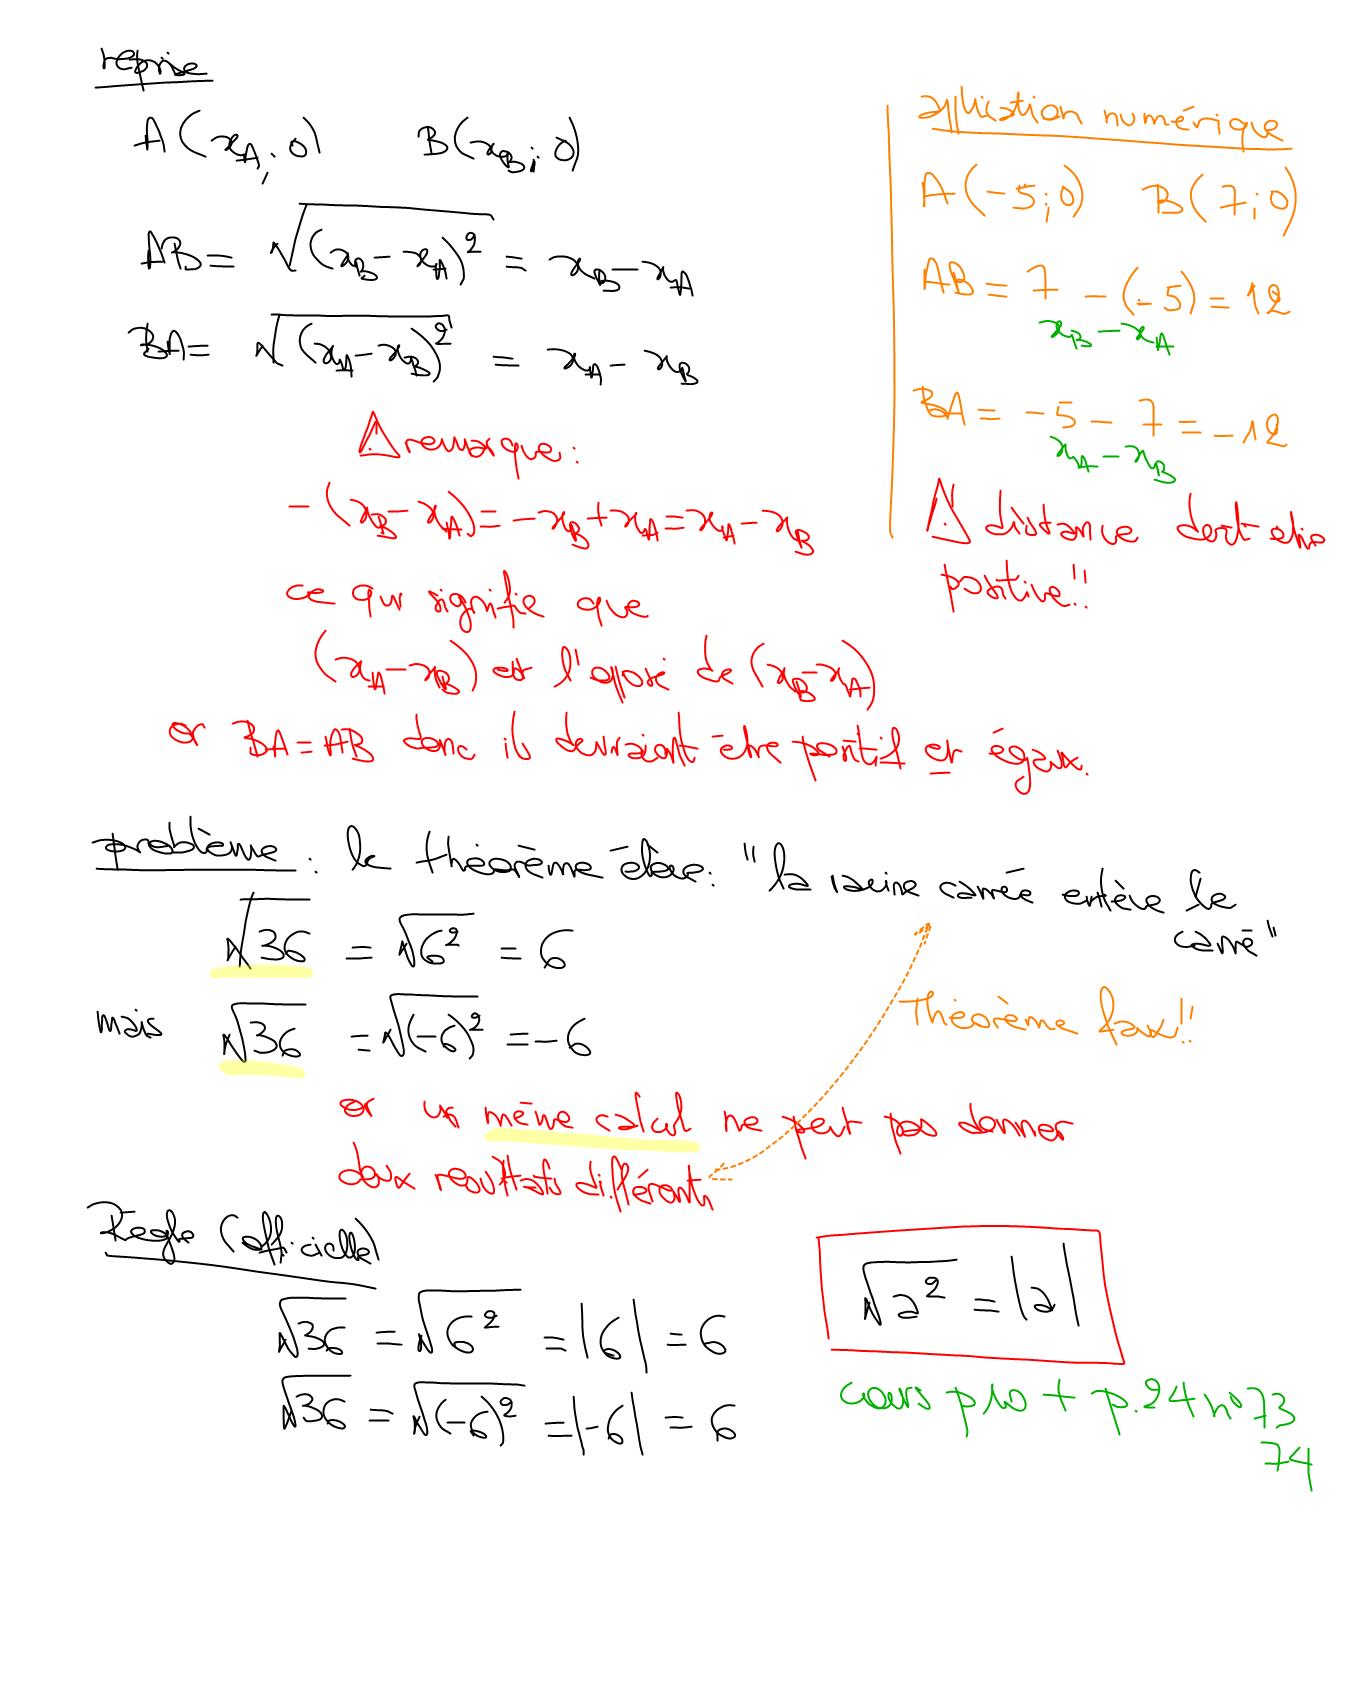 reprise
A(x_A; 0) B(x_B; 0)
AB = √(x_B - x_A)² = x_B - x_A
BA = √(x_A - x_B)² = x_A - x_B
⚠ remarque :
-(x_B - x_A) = -x_B + x_A = x_A - x_B
ce qui signifie que
(x_A - x_B) est l'opposé de (x_B - x_A)
or BA = AB donc ils devraient être positif et égaux.
application numérique
A(-5; 0) B(7; 0)
AB = 7 - (-5) = 12
x_B - x_A
BA = -5 - 7 = -12
x_A - x_B
⚠ distance doit être
positive!!
problème : le théorème élève : "la racine carrée enlève le
carré"
√36 = √6² = 6
mais √36 = √(-6)² = -6
Théorème faux!!
or un même calcul ne peut pas donner
deux resultats différents
Règle (officielle)
√36 = √6² = |6| = 6
√36 = √(-6)² = |-6| = 6
√a² = |a|
cours p10 + p.24 n°73
74